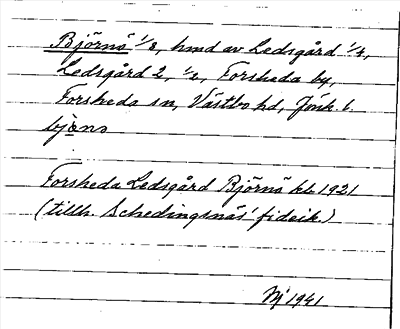 Björnö 1/8, hmd av Ledsgård 1/4,
Ledsgård 2, 1/2, Forsheda by,
Forsheda sn, Västbo hd, Jönk. l.
bjärnö
Forsheda Ledsgård Björnö kb 1921
(tillh. Schedingsnäs' fideik.)
Nj 1941